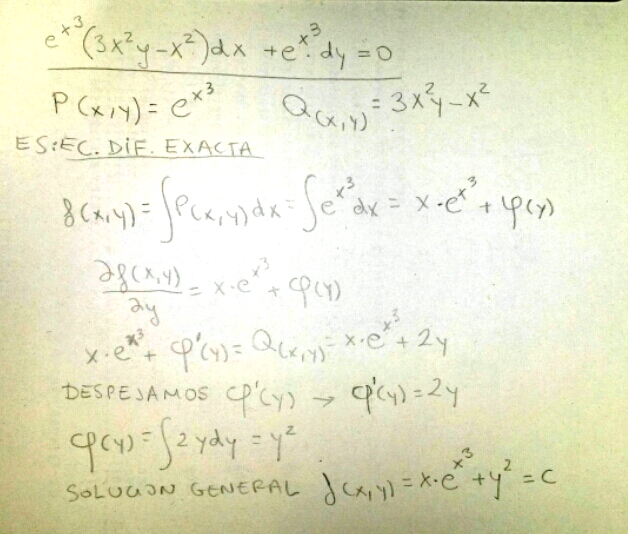 e^{x^3}(3x^2y-x^2)dx + e^{x^3}.dy = 0
P(x,y) = e^{x^3} Q(x,y) = 3x^2y-x^2
ES: EC. DIF. EXACTA
f(x,y) = ∫P(x,y)dx = ∫e^{x^3}dx = x·e^{x^3} + φ(y)
∂f(x,y)/∂y = x·e^{x^3} + φ(y)
x·e^{x^3} + φ'(y) = Q(x,y) = x·e^{x^3} + 2y
DESPEJAMOS φ'(y) → φ'(y) = 2y
φ(y) = ∫2ydy = y^2
SOLUCION GENERAL f(x,y) = x·e^{x^3} + y^2 = C